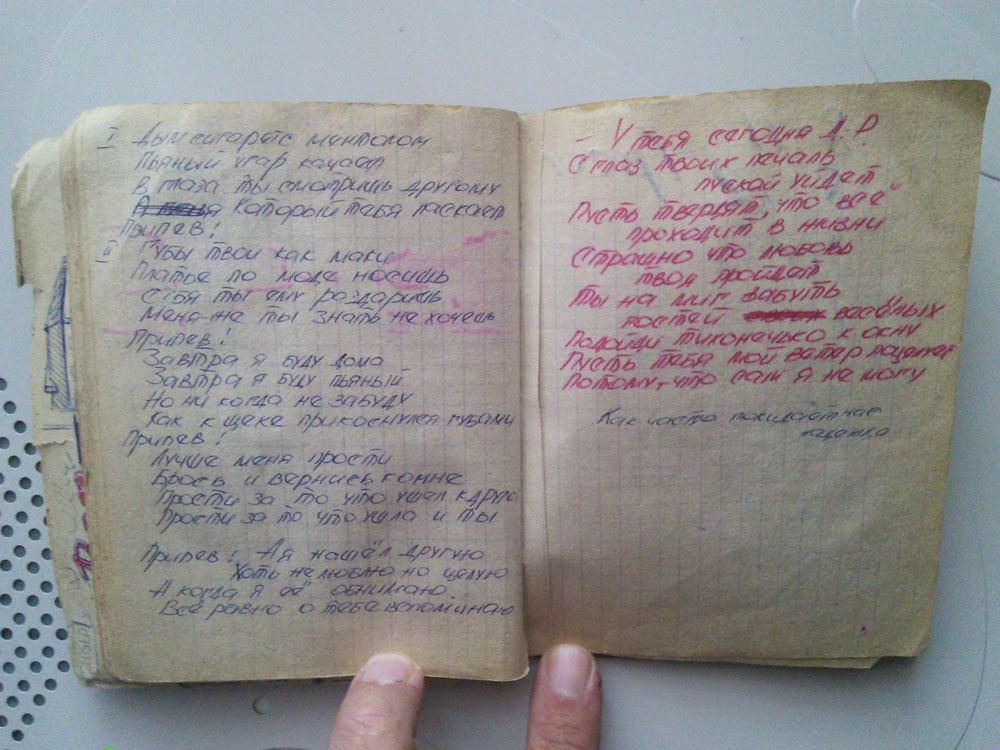 I Дым сигарет с ментолом
Пьяный угар качает
В глаза ты смотришь другому
А меня который тебя ласкает
Припев!
Губы твои как маки
Платье по моде носишь
Себя ты ему раздаришь
Меня-же ты знать не хочешь
Припев!
Завтра я буду дома
Завтра я буду пьяный
Но ни когда не забуду
Как к щеке прикоснулся губами
Припев!
Лучше меня прости
Брось и вернись ко мне
Прости за то что ушел к
Прости за то, что ушла и ты
Припев! А я нашёл другую
Хоть не люблю но целую
А когда я её обнимаю
Всё равно о тебе вспоминаю
- У тебя сегодня Д. Р
С глаз твоих печаль
пускай уйдет
Пусть твердят, что всё
проходит в жизни
Страшно что любовь
твоя пройдет
Ты на миг забудь
гостей весёлых
Подойди тихонечко к окну
Пусть тебя мой ветер поцелует
Потому, что сам я не могу
Как часто